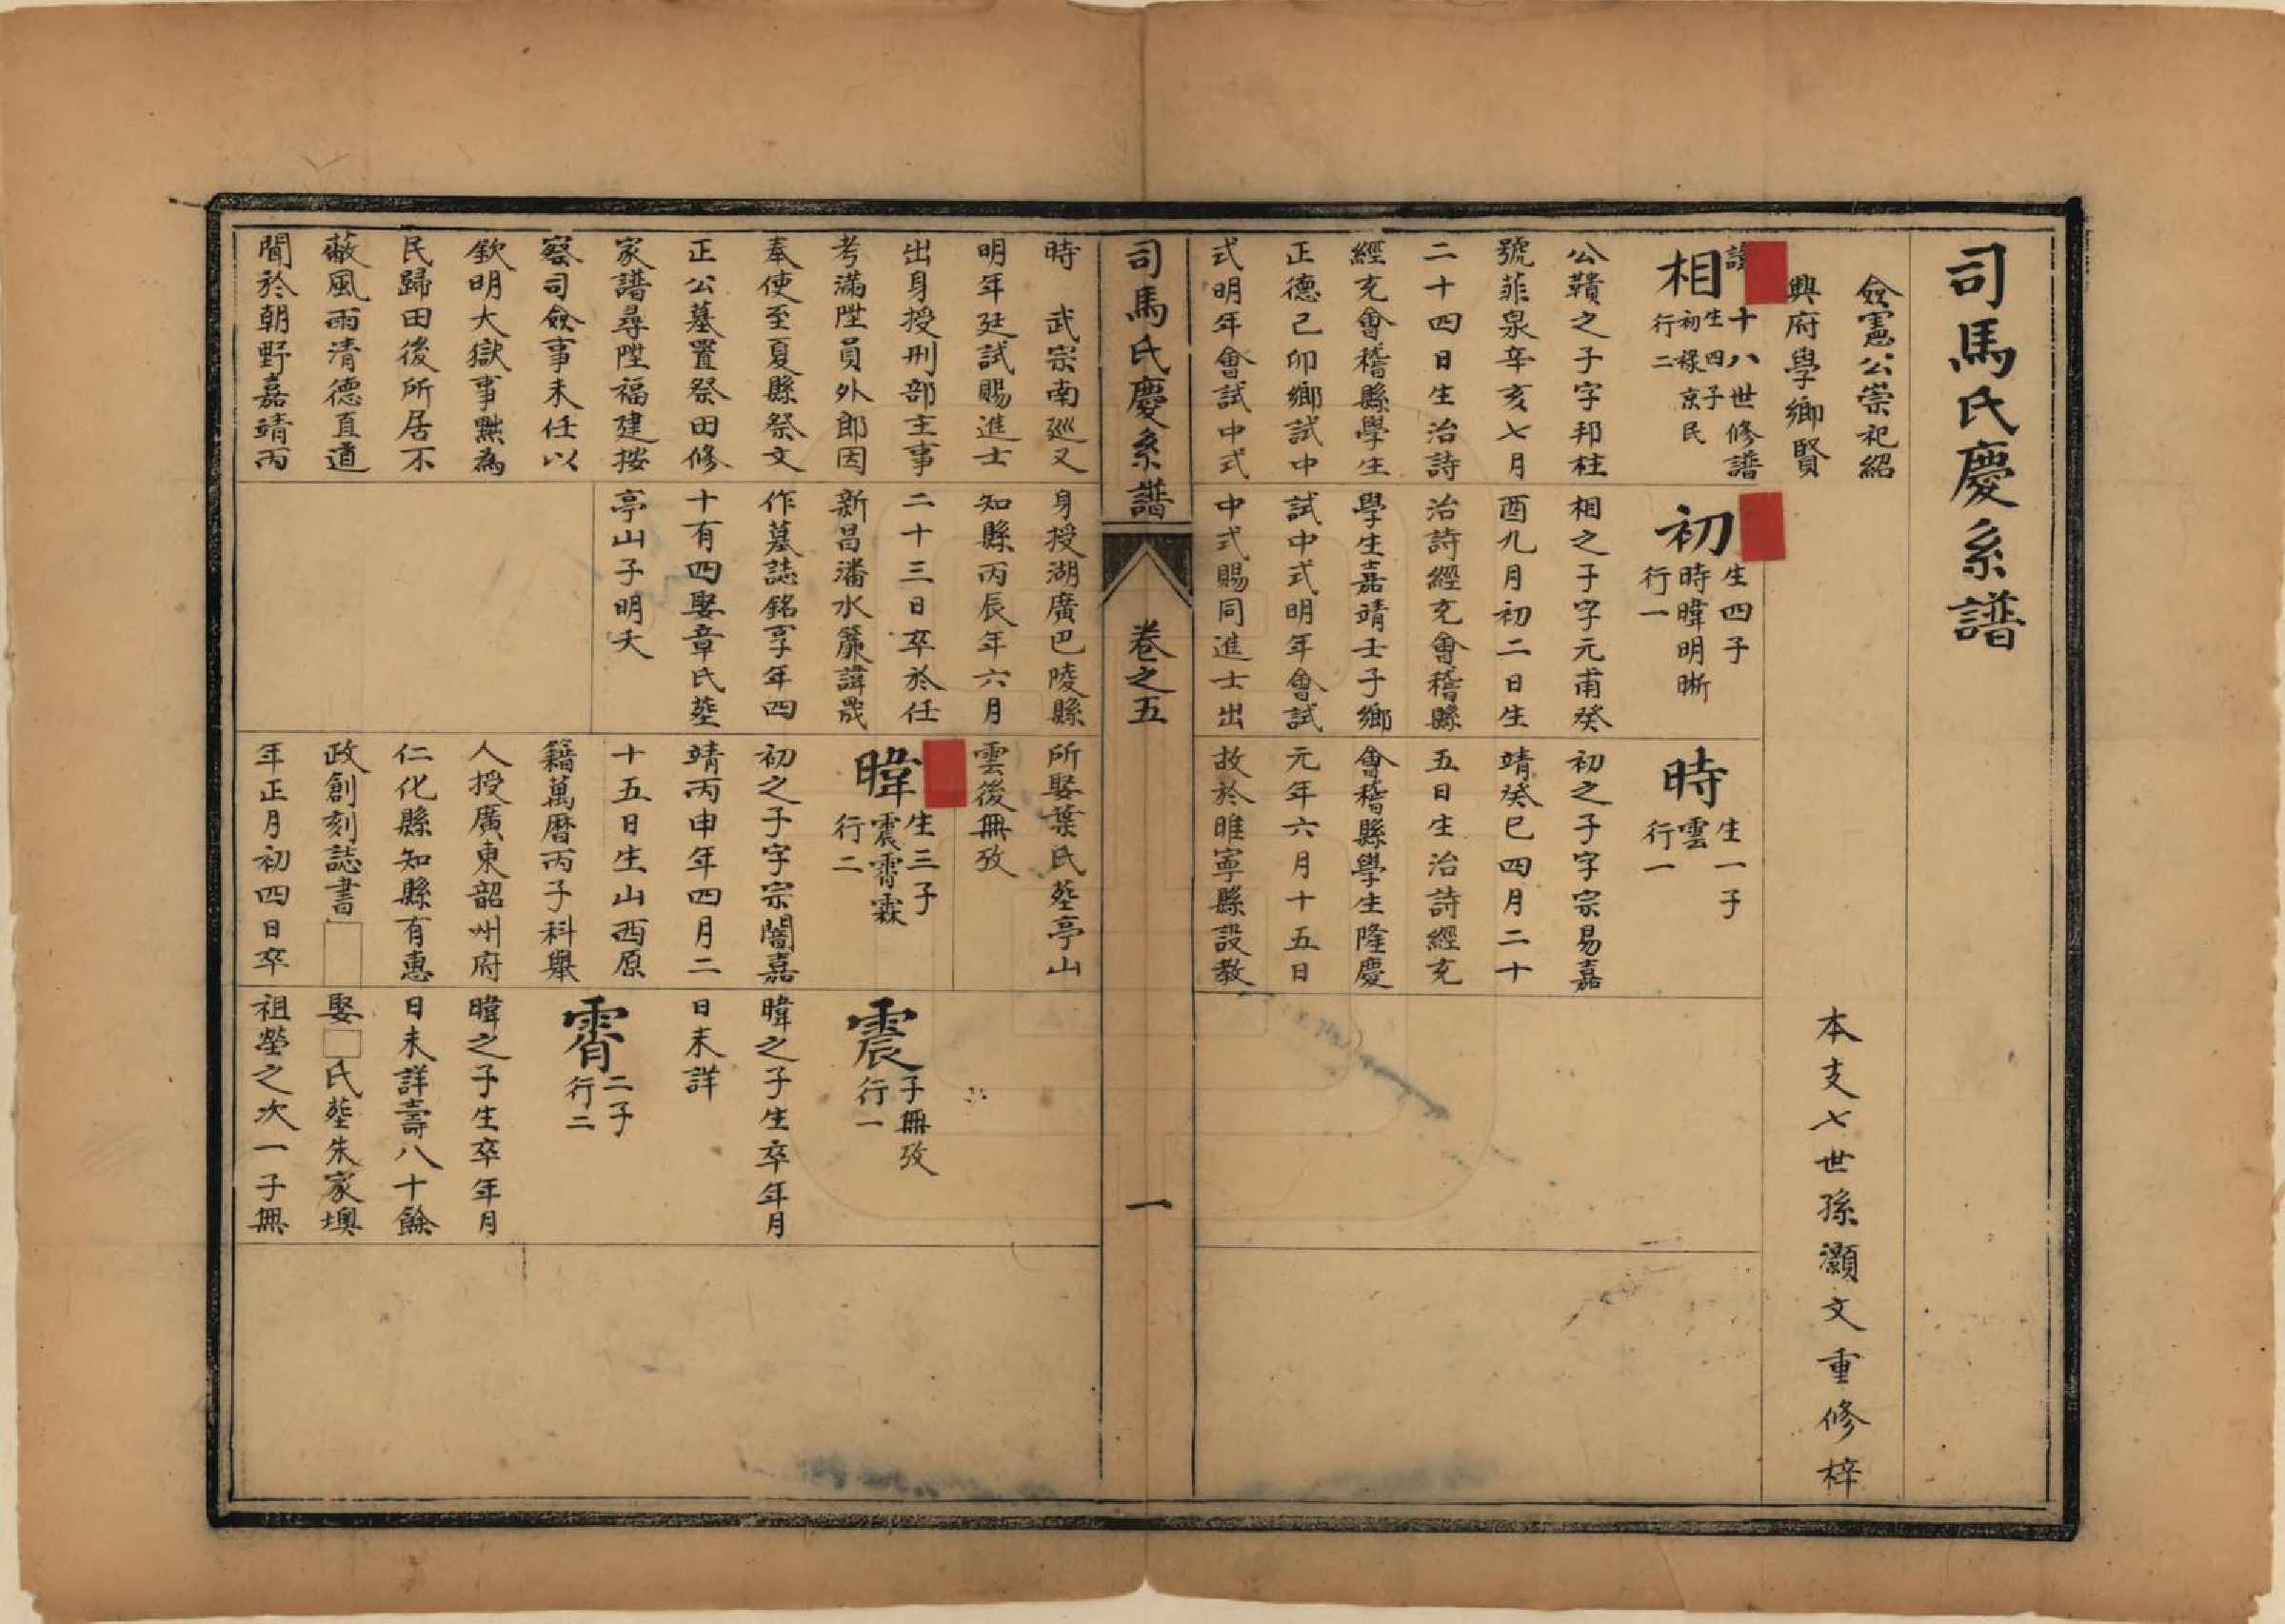 司馬氏慶系譜
僉憲公崇祀紹
興府學鄉賢
本支七世孫灝文重修梓
十八世修譜
相
生四子
初祿京民
行二
公鞼之子字邦柱
號菲泉辛亥七月
二十四日生治詩
經充會稽縣學生
正德己卯鄉試中
式明年會試中式
初
生四子
時暐明晰
行一
相之子字元甫癸
酉九月初二日生
治詩經充會稽縣
學生嘉靖壬子鄉
試中式明年會試
中式賜同進士出
時
生一子
雲
行一
初之子字宗易嘉
靖癸巳四月二十
五日生治詩經充
會稽縣學生隆慶
元年六月十五日
故於睢寧縣設教
司馬氏慶系譜
卷之五
一
時　武宗南巡又
明年廷試賜進士
出身授刑部主事
考滿陞員外郎因
奉使至夏縣祭文
正公墓置祭田修
家譜尋陞福建按
察司僉事未任以
欽明大獄事黜為
民歸田後所居不
蔽風雨清德直道
聞於朝野嘉靖丙
身授湖廣巴陵縣
知縣丙辰年六月
二十三日卒於任
新昌潘水簾諱晟
作墓誌銘享年四
十有四娶章氏塟
亭山子明夭
所娶葉氏塟亭山
雲後無攷
暐
生三子
震霄霖
行二
初之子字宗闇嘉
靖丙申年四月二
十五日生山西原
籍萬曆丙子科舉
人授廣東韶州府
仁化縣知縣有惠
政創刻誌書
年正月初四日卒
震
子無攷
行一
暐之子生卒年月
日未詳
霄
二子
行二
暐之子生卒年月
日未詳壽八十餘
娶□氏塟朱家墺
祖塋之次一子無